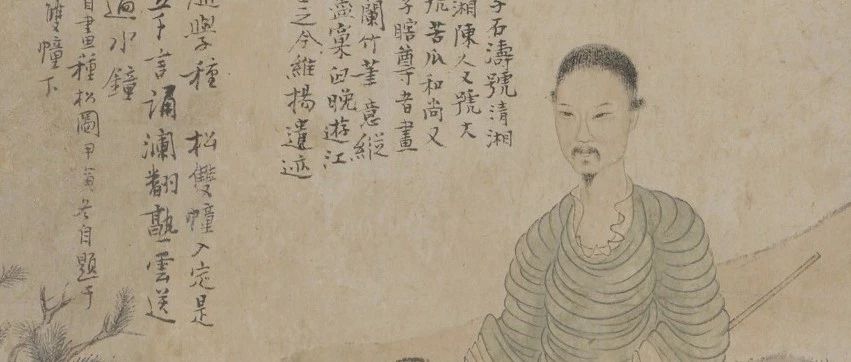 石濤號清湘
湘陳人又號大
苦瓜和尚又
瞎尊者畫
蘭竹筆意縱
盡窠臼晚遊江
之今維揚遺迹
學種松雙幢入定是
千言誦瀾翻一雲送
過水鐘
自畫種松圖甲寅冬自題于
雙幢下